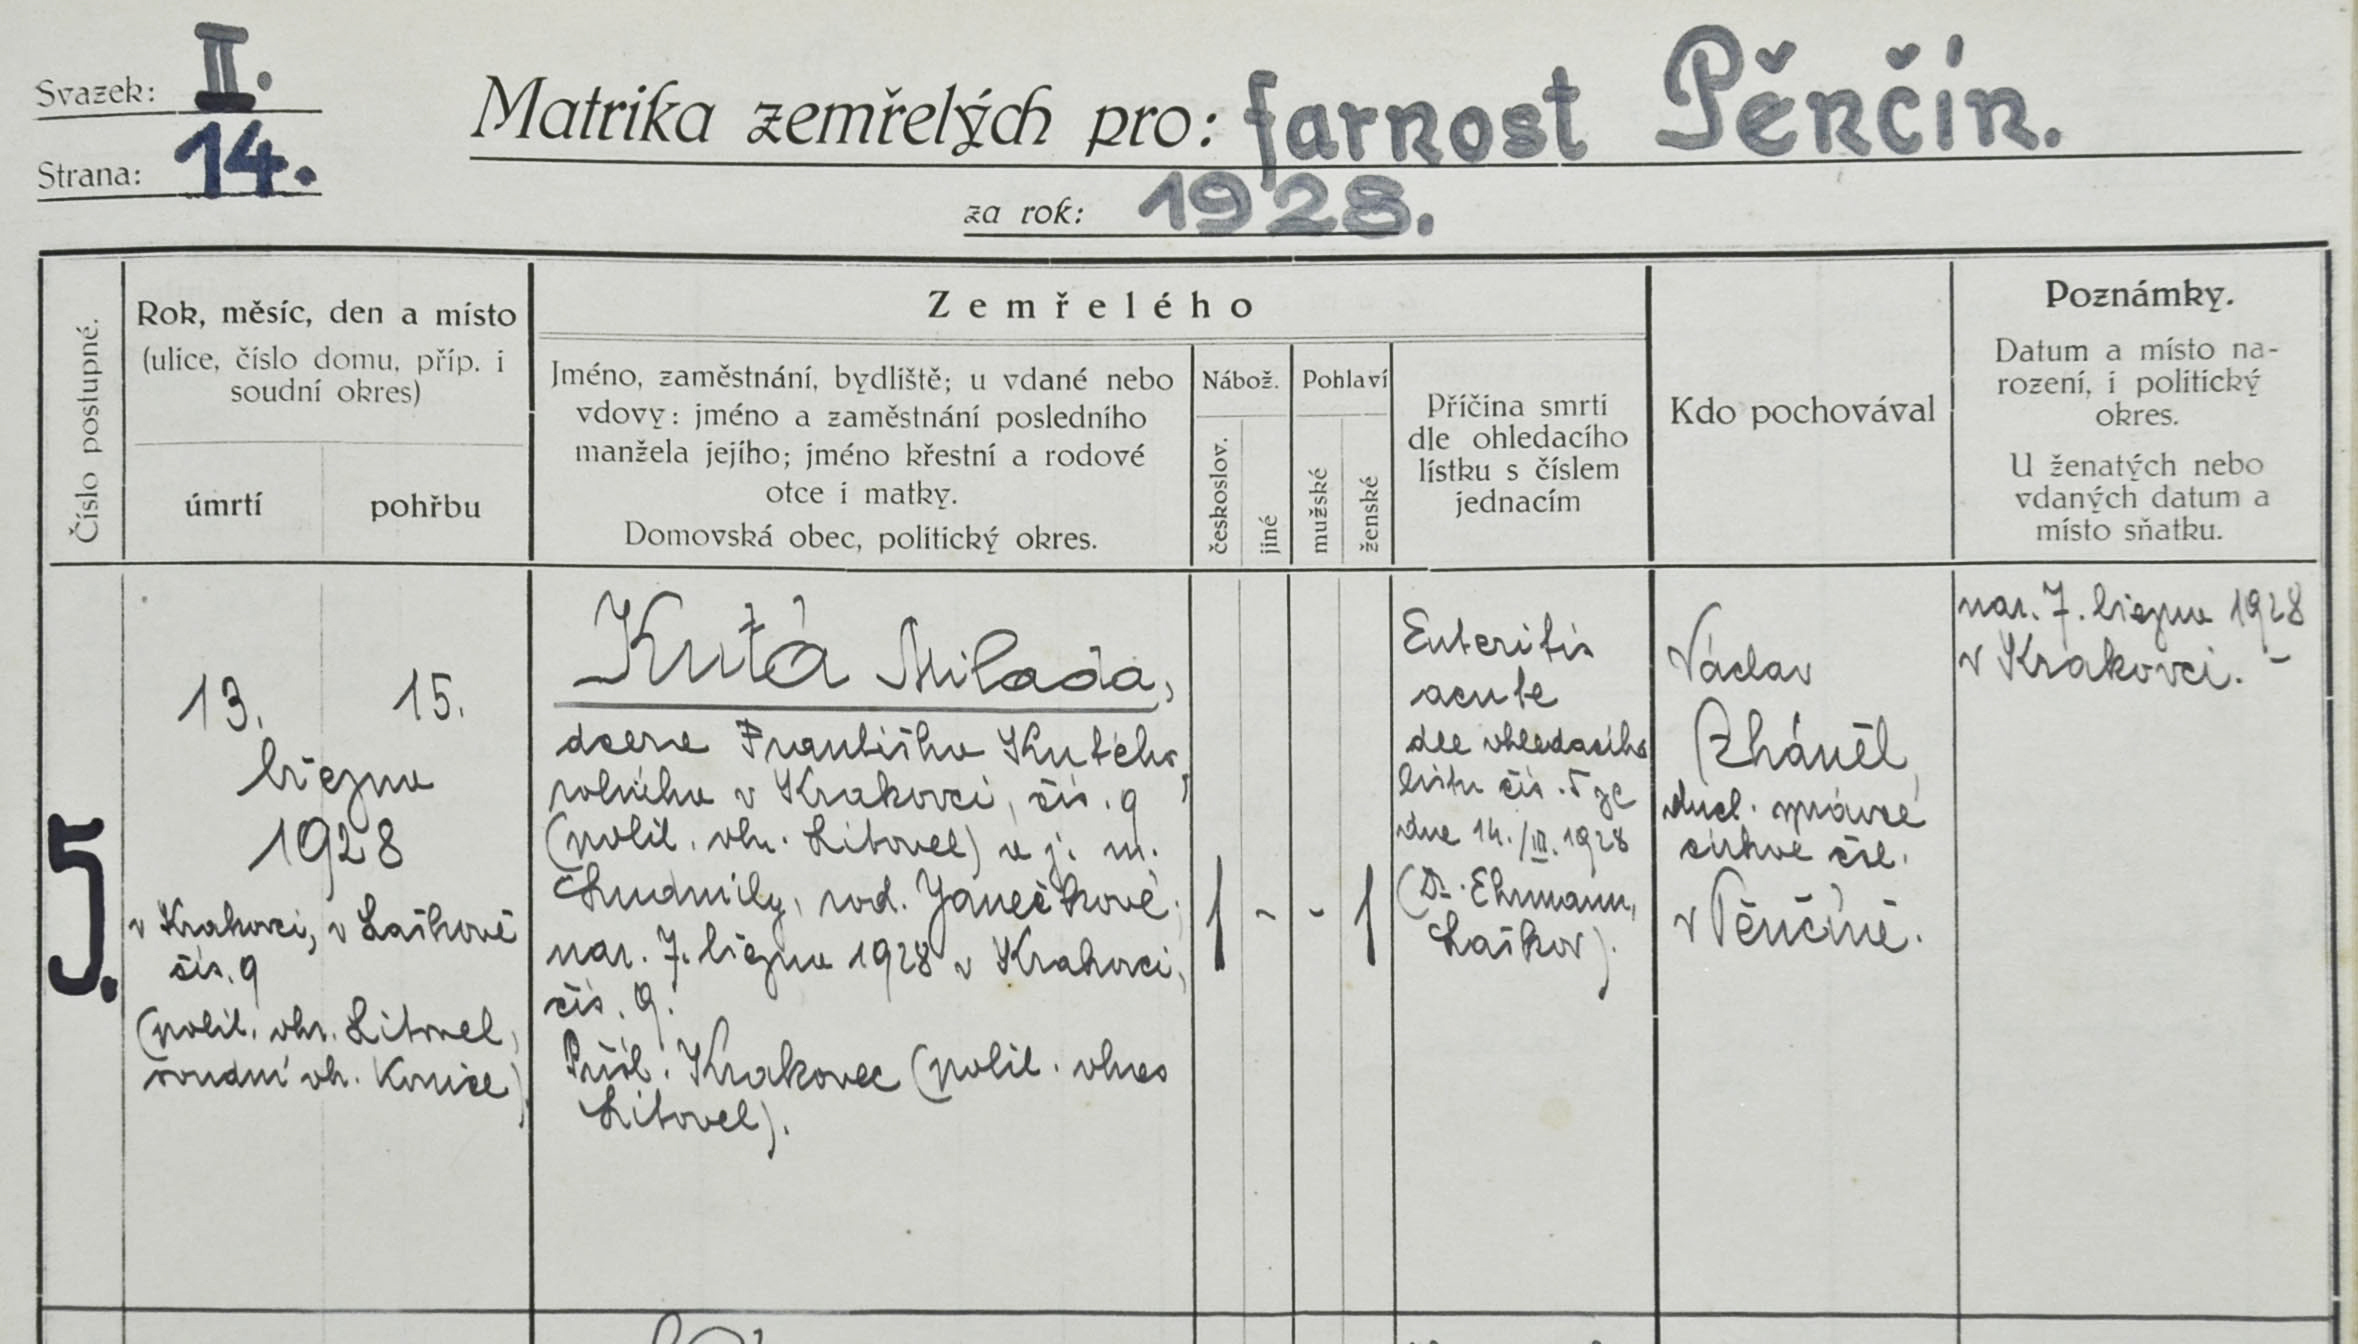 Svazek: II.
Strana: 14.
Matrika zemřelých pro: farnost Pěnčín.
za rok: 1928.
Číslo postupné.
Rok, měsíc, den a místo
(ulice, číslo domu, příp. i
soudní okres)
úmrtí
pohřbu
Zemřelého
Jméno, zaměstnání, bydliště; u vdané nebo
vdovy: jméno a zaměstnání posledního
manžela jejího; jméno křestní a rodové
otce i matky.
Domovská obec, politický okres.
Nábož.
českoslov.
jiné
Pohlaví
mužské
ženské
Příčina smrti
dle ohledacího
lístku s číslem
jednacím
Kdo pochovával
Poznámky.
Datum a místo na-
rození, i politický
okres.
U ženatých nebo
vdaných datum a
místo sňatku.
5.
13. 15.
března
1928
v Krakovci, v Laškově
čís. 9
(polit. okr. Litovel,
soudní ok. Konice)
Kutá Milada,
dcera Františka Kutého,
rolníka v Krakovci, čís. 9
(polit. okr. Litovel) a j. m.
Ludmily, rod. Janečkové.
nar. 7. března 1928 v Krakovci,
čís. 9.
Přísl. Krakovec (polit. okres
Litovel).
1 - - 1
Enteritis
acute
dle ohledacího
listu čís. 5
dne 14./III. 1928
(Dr. Ehrmann,
Laškov).
Václav
Zháněl,
duch. správce
církve čsl.
v Pěnčíně.
nar. 7. března 1928
v Krakovci. -